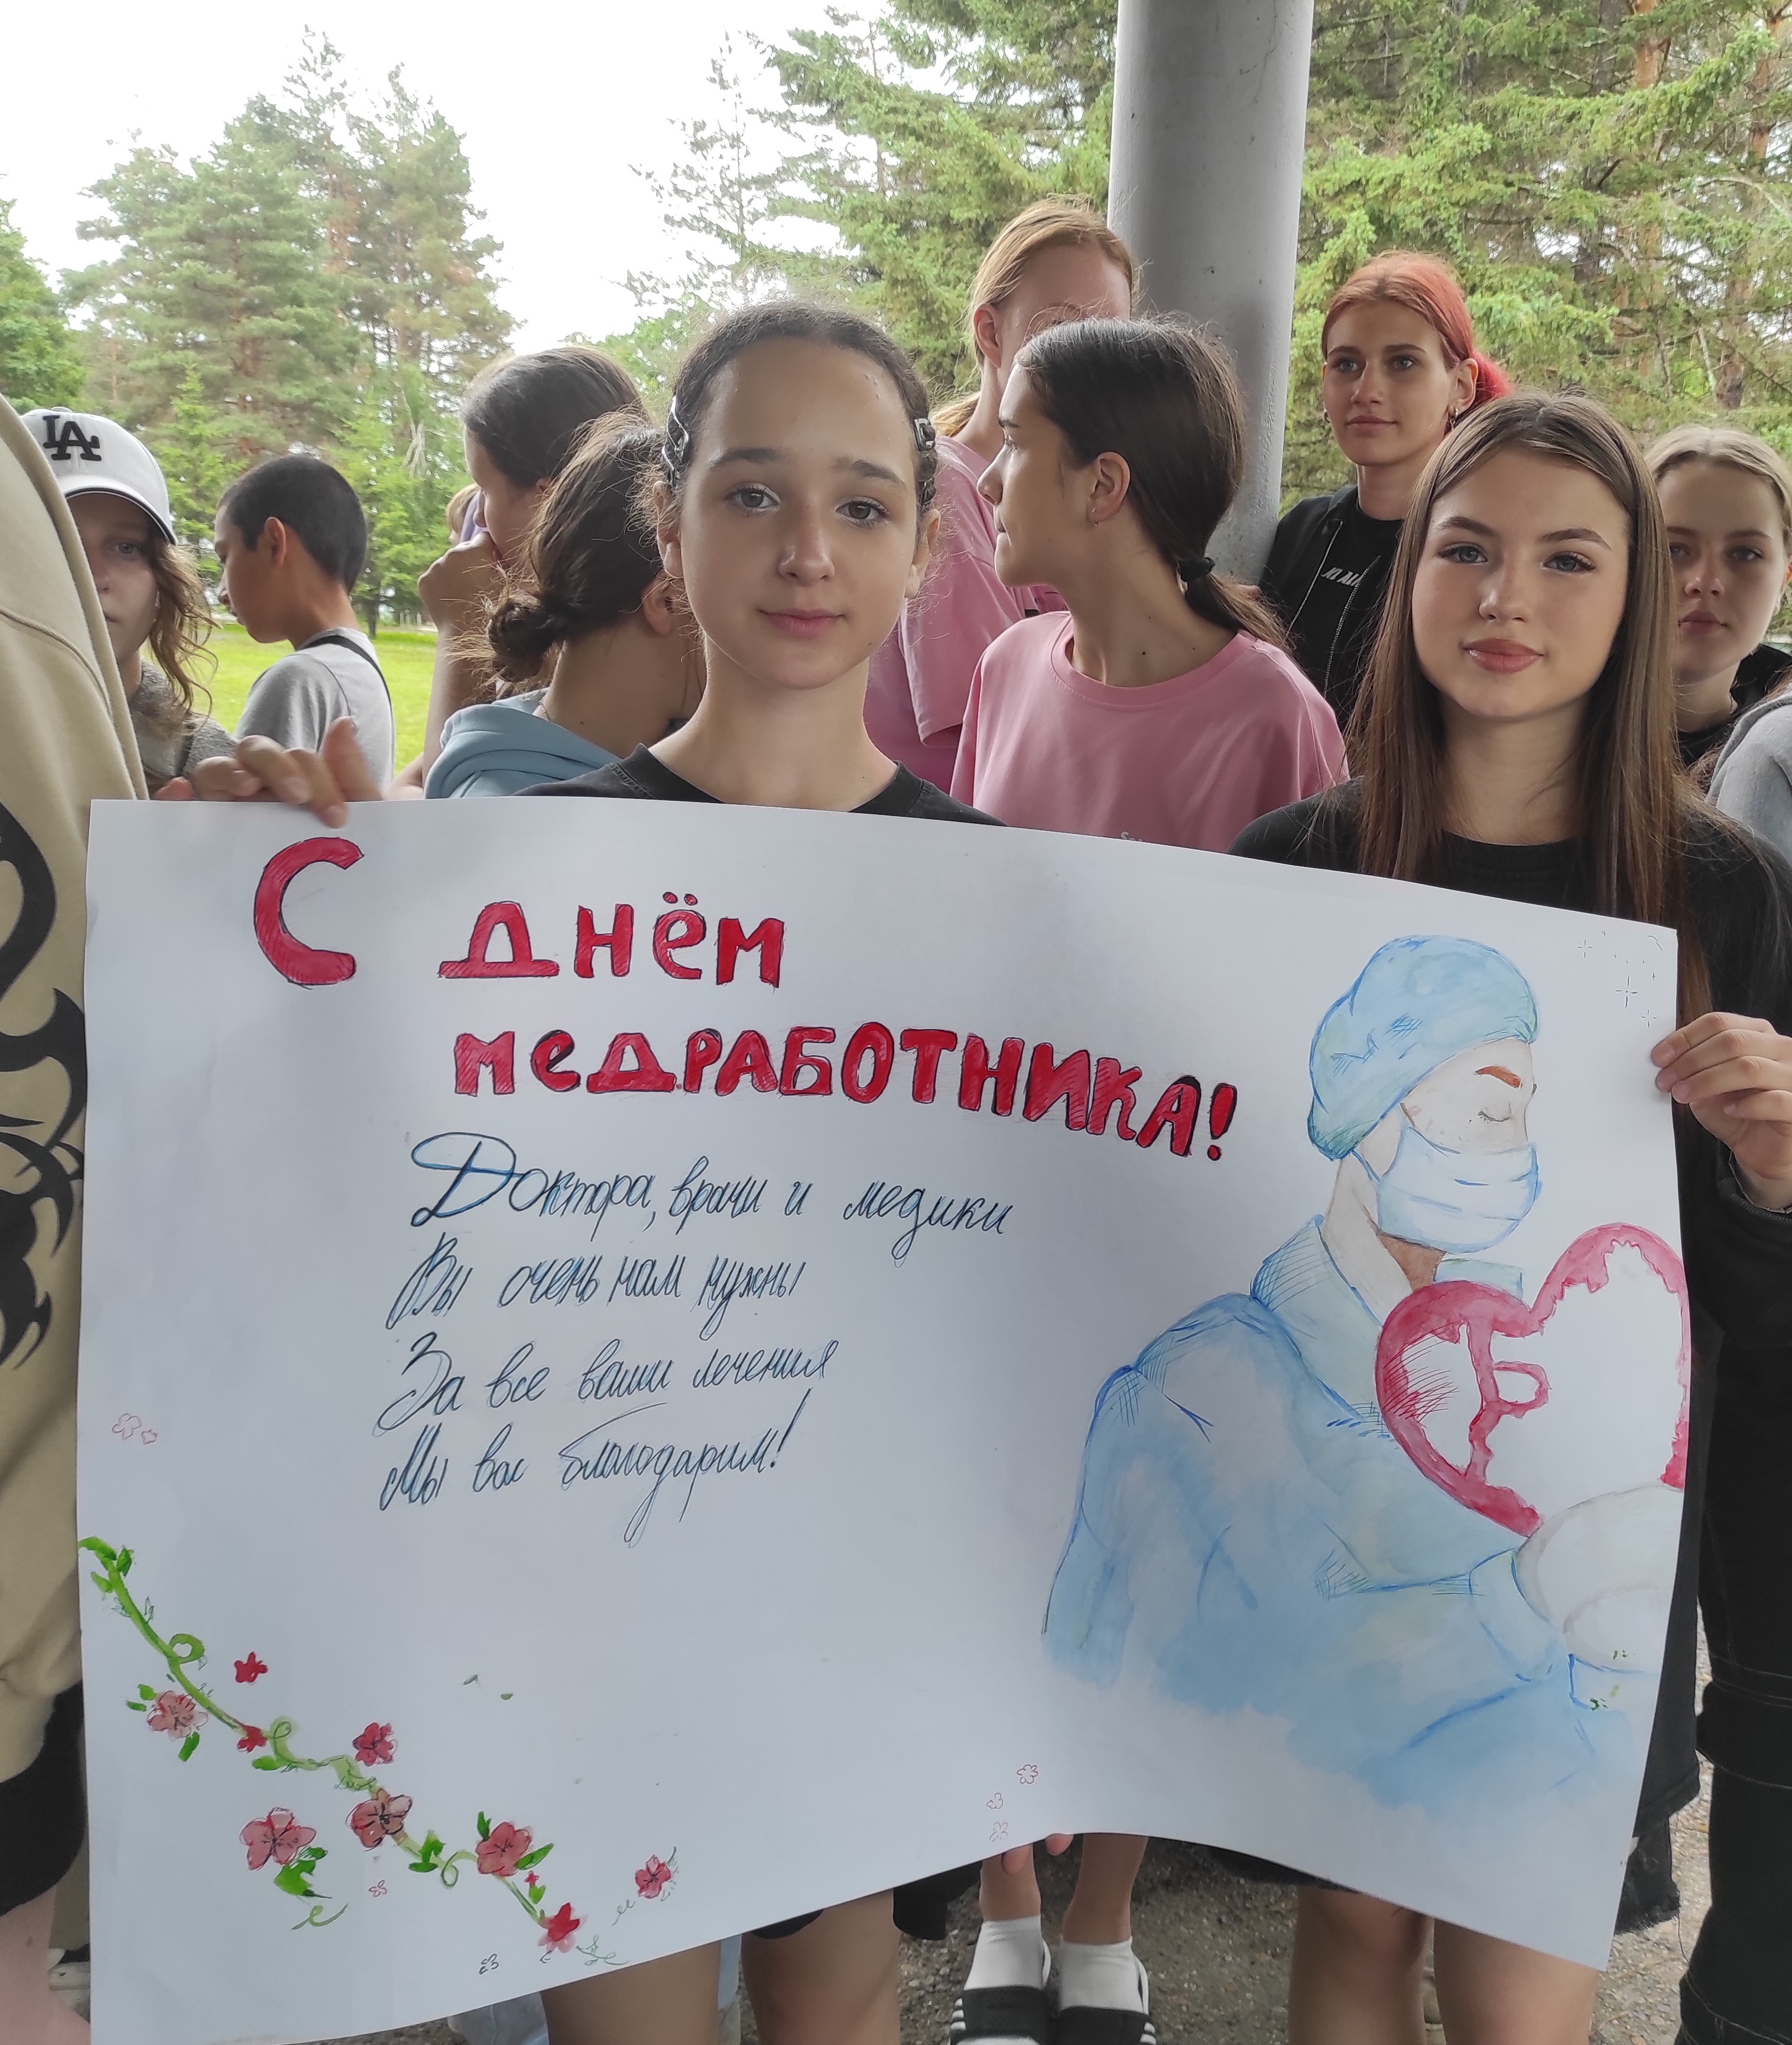 LA
С днём
медРАБОТНИКА!
Доктора, врачи и медики
Вы очень нам нужны
За все ваши лечения
Мы вас благодарим!